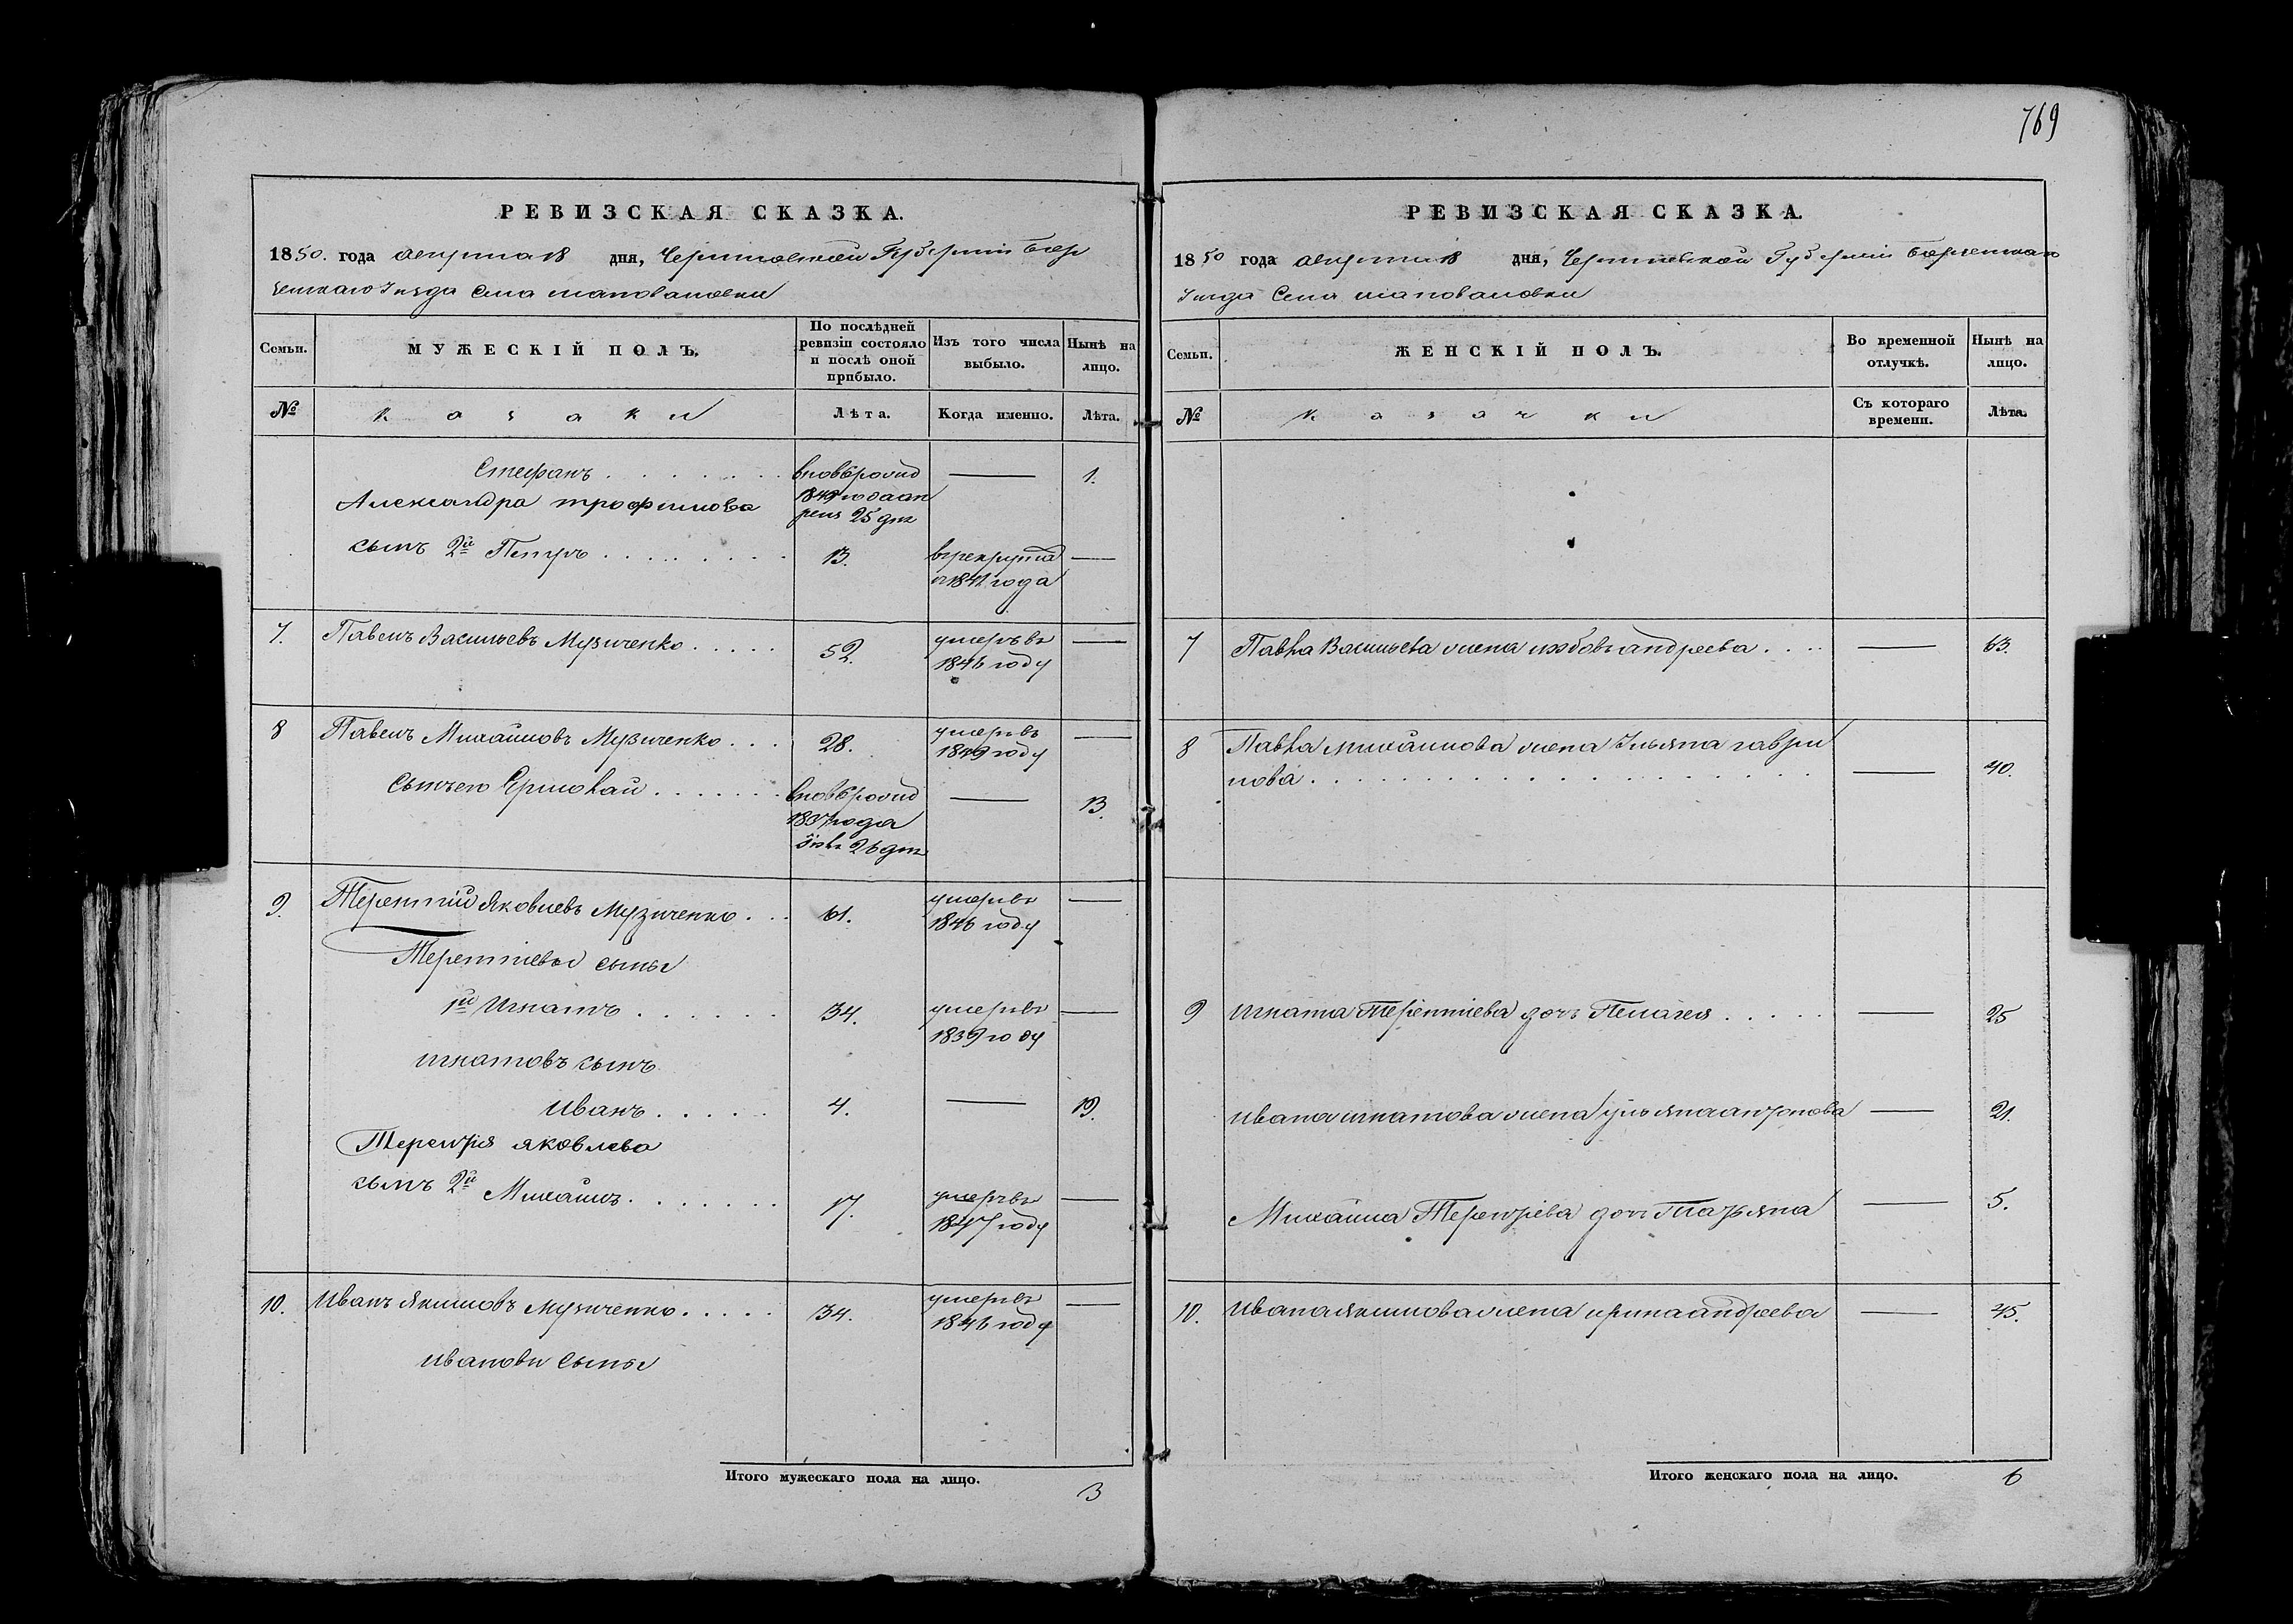 769
РЕВИЗСКАЯ СКАЗКА.
1850. года августа 18 дня, Черниговской Губерніи Бор
зенскаго Уезда Села Шаповаловки
Семьи. МУЖЕСКІЙ ПОЛЪ. По послѣдней ревизіи состояло и послѣ оной прибыло. Изъ того числа выбыло. Нынѣ на лицо.
№ казаки Лѣта. Когда именно. Лѣта.
Стефанъ . . . . . . . вновь рожд — 1.
Александра трофимова 1849 года ап
реля 25 дня
сынъ 2й Петръ . . . . . . . . 13. в рекрута —
1841 года
7. Павелъ Васильевъ Музиченко . . . . . 52. умеръ въ —
1846 году
8 Павелъ Михайловъ Музиченко . . . 28. умеръ въ —
1849 году
Сынъ его Ермолай . . . . . . . вновь рожд — 13.
1837 года
26 дня
9. Терентій Яковлевъ Музиченко . . . 61. умеръ въ —
1846 году
Терентіевы сыны
1й Игнатъ . . . . . . 34. умеръ въ —
1839 году
Игнатовъ сынъ
Иванъ . . . . . 4. — 19.
Терентія яковлева
сынъ 2й Михайло . . . . . . . 17. умеръ въ —
1847 году
10. Иванъ Якимовъ Музиченко . . . . . 34. умеръ въ —
1846 году
Ивановы Сыны
Итого мужескаго пола на лицо.
3
РЕВИЗСКАЯ СКАЗКА.
1850 года августа 18 дня, Черниговской Губерніи Борзенскаго
Уезда Села Шаповаловки
Семьи. ЖЕНСКІЙ ПОЛЪ. Во временной отлучкѣ. Нынѣ на лицо.
№ казачки Съ котораго времени. Лѣта.
7 Павла Васильева жена любовь андреева . . . . — 63.
8 Павла михайлова жена Ульяна гаври
лова . . . . . . . . . . . . . . . . . . — 40.
9 Игната Терентіева дочь Пелагея . . . . . — 25
Ивана игнатова жена ульяна антонова — 21.
Михайла Терентіева дочь Татьяна — 5.
10. Ивана якимова жена ирина андреева — 45.
Итого женскаго пола на лицо. 6